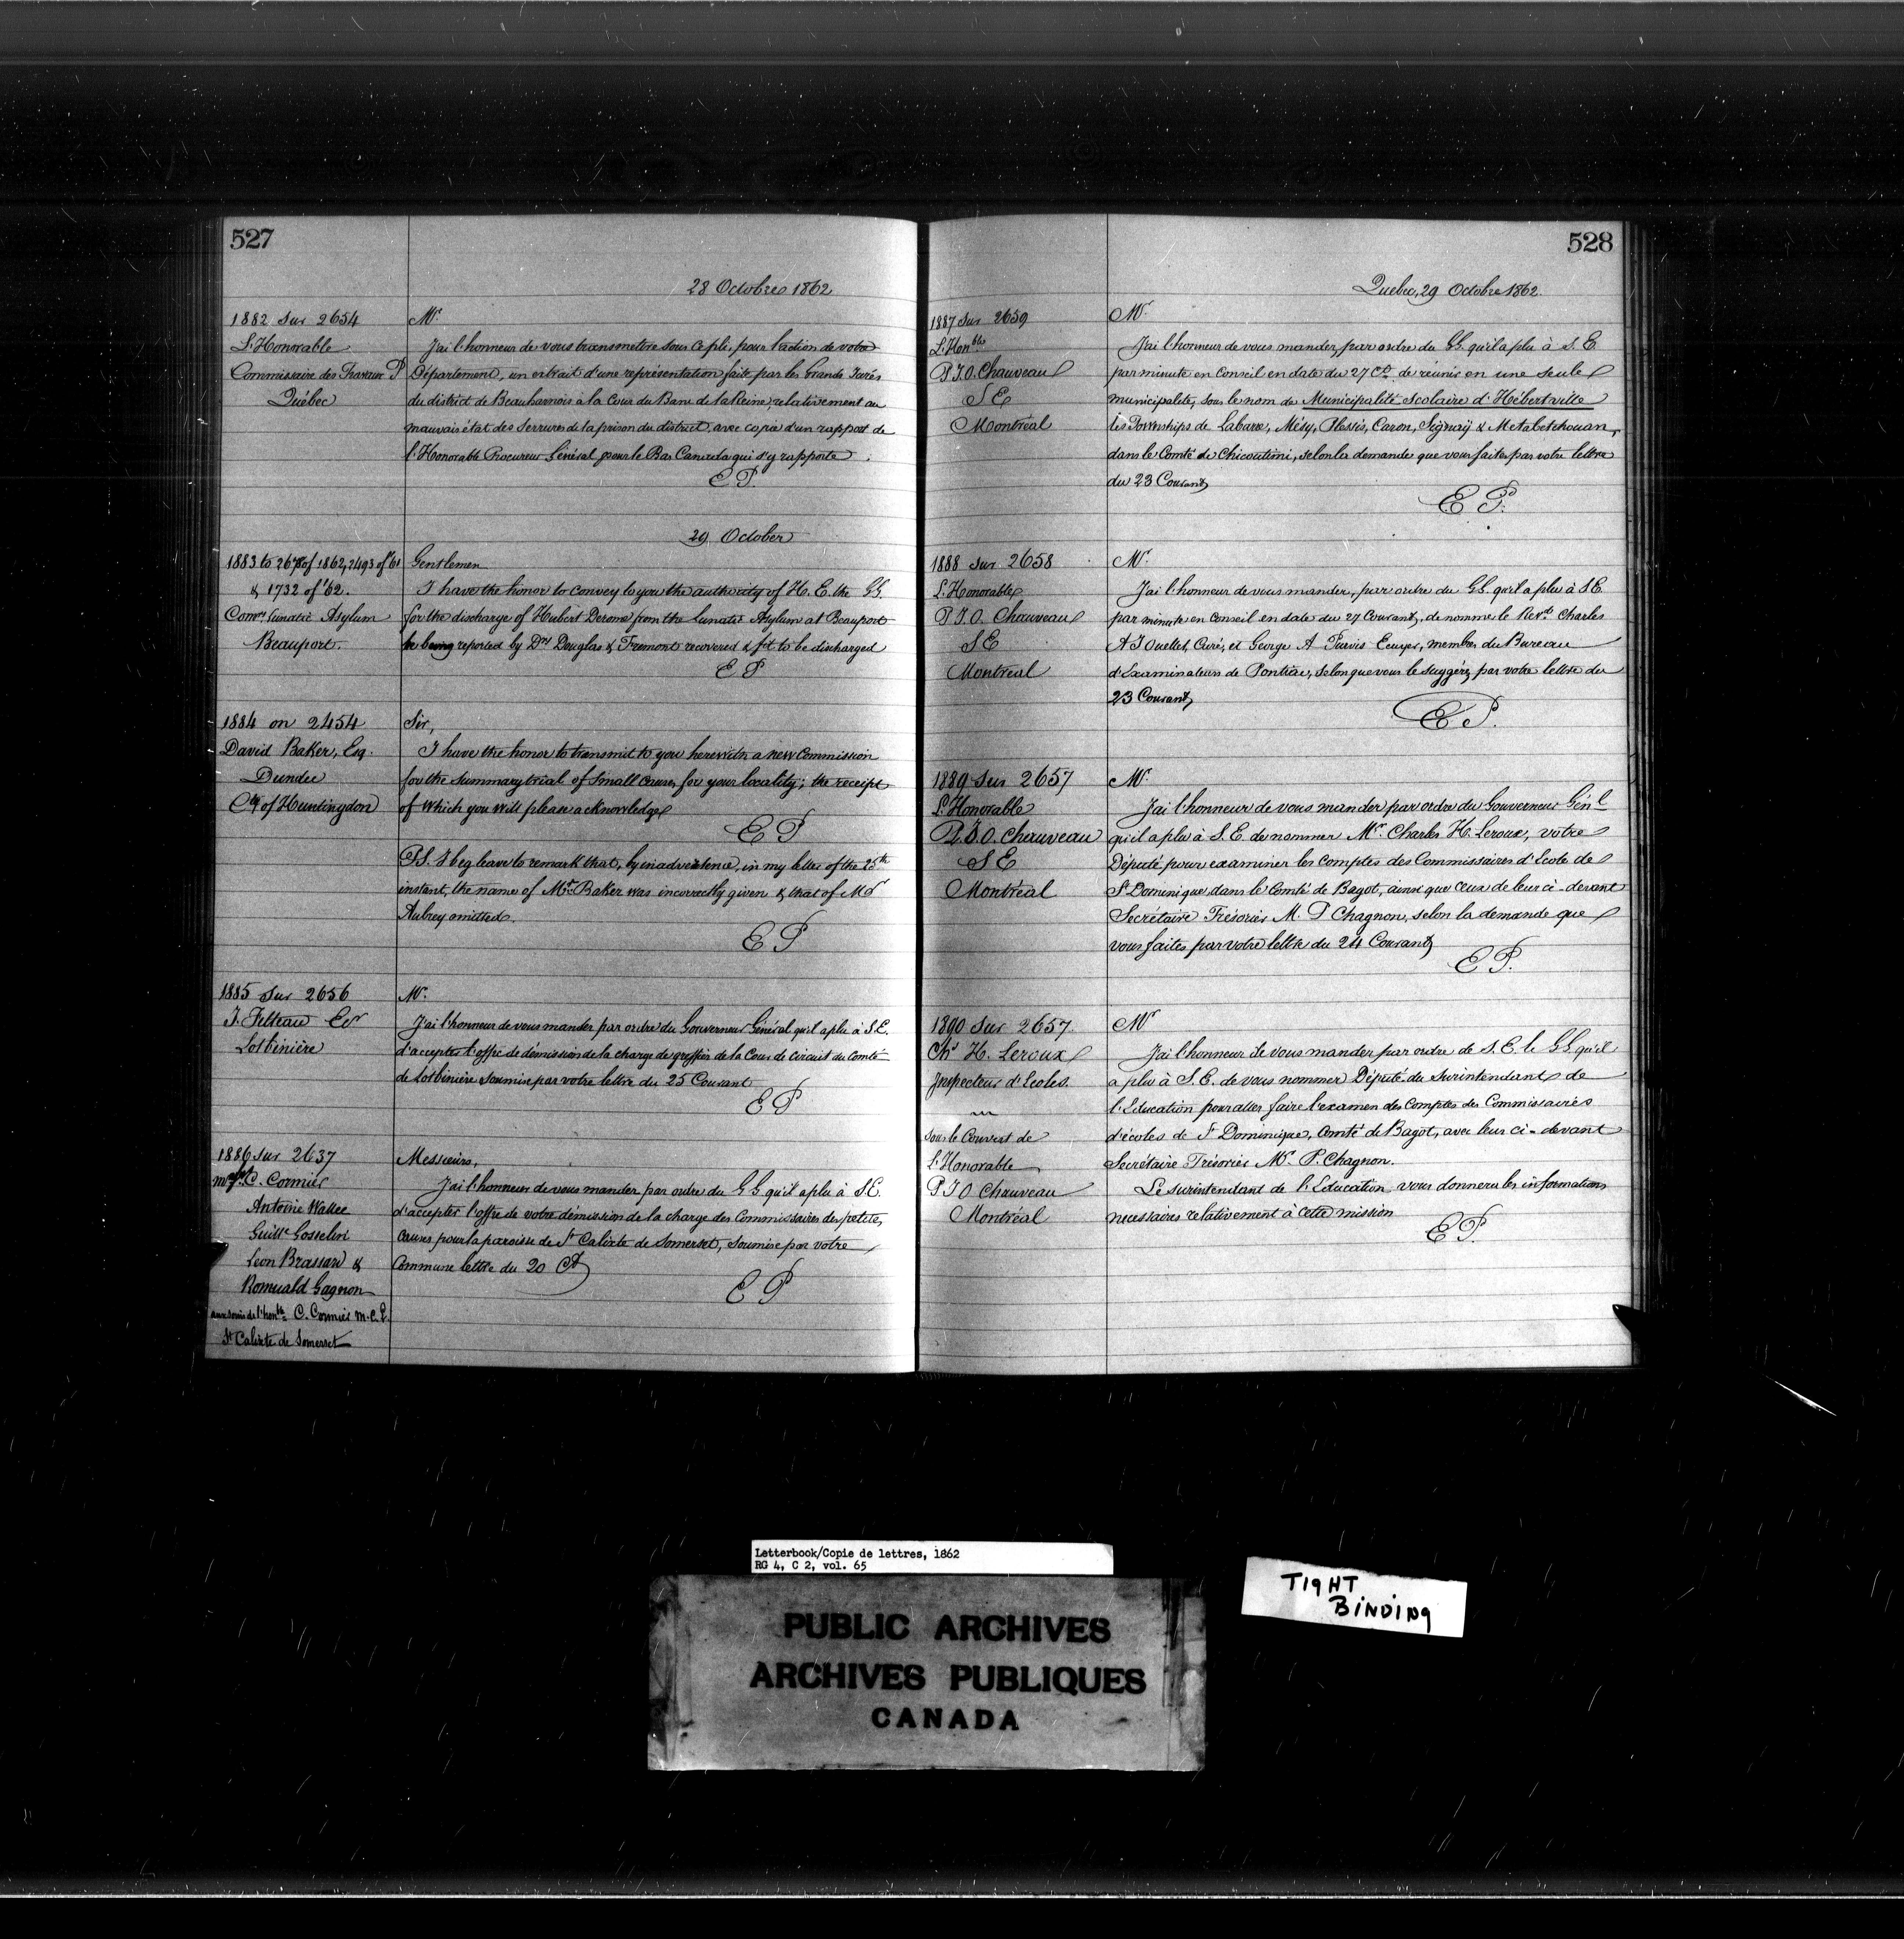 527
28 Octobre 1862
1882 sur 2654
L'Honorable
Commissaire des Travaux P
Québec
Mr.
J'ai l'honneur de vous transmettre sous ce pli, pour l'action de votre
Département, un extrait d'une représentation faite par les Grands Jurés
du district de Beauharnois a la Cour du Banc de la Reine, relativement au
mauvais état des serrures de la prison du district, avec copie d'un rapport de
l'Honorable Procureur Général pour le Bas Canada qui s'y rapporte.
E P.
29 October
1883 to 2678 of 1862, 2493 of '61
& 1732 of '62.
Comrs Lunatic Asylum
Beauport.
Gentlemen
I have the honor to convey to you the authority of H. E. the GG.
for the discharge of Hubert Derome from the Lunatic Asylum at Beauport
he being reported by Drs Douglas & Fremont recovered & fit to be discharged
E P
1884 on 2454
David Baker, Esq.
Dundee
Cty of Huntingdon
Sir,
I have the honor to transmit to you herewith a new Commission
for the summary trial of small causes for your locality; the receipt
of which you will please acknowledge
E P
P.S. I beg leave to remark that, by inadvertence, in my letter of the 25th
instant, the name of Mr. Baker was incorrectly given & that of Mr
Aubrey omitted.
E P
1885 sur 2656
J. Filteau Er
Lotbinière
Mr.
J'ai l'honneur de vous mander par ordre du Gouverneur Général qu'il a plu à S.E.
d'accepter l'offre de démission de la charge de greffier de la Cour de Circuit du Comté
de Lotbinière soumise par votre lettre du 25 Courant
E P
1886 sur 2637
C. Cormier
Antoine Wallee
Guille Gosselin
Leon Brassard &
Romuald Gagnon
aux soins de l'honble C. Cormier M.C.L.
St Calixte de Somerset
Messieurs,
J'ai l'honneur de vous mander par ordre du GG qu'il a plu à S.E.
d'accepter l'offre de votre démission de la charge des Commissaires des petites
causes pour la paroisse de St Calixte de Somerset, soumise par votre
Commune lettre du 20 Ct
E P
528
Quebec, 29 Octobre 1862.
1887 sur 2659
L'Honble
P.J.O. Chauveau
S E
Montréal
Mr.
J'ai l'honneur de vous mander, par ordre du GG. qu'il a plu à S. E
par minute en Conseil en date du 27 Ct. de réunir en une seule
municipalité, sous le nom de Municipalité Scolaire d'Hébertville
les Townships de Labarre, Mésy, Plessis, Caron, Signaÿ & Metabetchouan,
dans le Comté de Chicoutimi, selon la demande que vous faites par votre lettre
du 23 Courant
E P.
1888 sur 2658
L'Honorable
P.J.O. Chauveau
S E
Montreal
Mr.
J'ai l'honneur de vous mander, par ordre du GG. qu'il a plu à S.E.
par minute en Conseil en date du 27 Courant, de nommer le Revd. Charles
A J Ouellet, Curé, et George A Purvis Ecuyer, membres du Bureau
d'Examinateurs de Pontiac, selon que vous le suggérez par votre lettre du
23 Courant
E P.
1889 sur 2657
L'Honorable
P.J.O. Chauveau
S E
Montréal
Mr.
J'ai l'honneur de vous mander par ordre du Gouverneur Génl
qu'il a plu à S.E. de nommer Mr. Charles H. Leroux, votre
Député pour examiner les comptes des Commissaires d'Ecole de
St Dominique dans le Comté de Bagot, ainsi que ceux de leur ci-devant
Secrétaire Trésorier M. P Chagnon, selon la demande que
vous faites par votre lettre du 24 Courant
E P.
1890 sur 2657.
Chs H. Leroux
Inspecteur d'Ecoles.
sous le Couvert de
L'Honorable
P J O Chauveau
Montréal
Mr
J'ai l'honneur de vous mander par ordre de S.E. le GG. qu'il
a plu à S.E. de vous nommer Député du Surintendant de
l'Education pour aller faire l'examen des Comptes des Commissaires
d'écoles de St Dominique, Comté de Bagot, avec leur ci-devant
Secrétaire Trésorier Mr. P. Chagnon.
Le Surintendant de l'Education vous donnera les informations
necessaires relativement à cette mission
E P.
Letterbook/Copie de lettres, 1862
RG 4, C 2, vol. 65
PUBLIC ARCHIVES
ARCHIVES PUBLIQUES
CANADA
TIGHT
BINDING